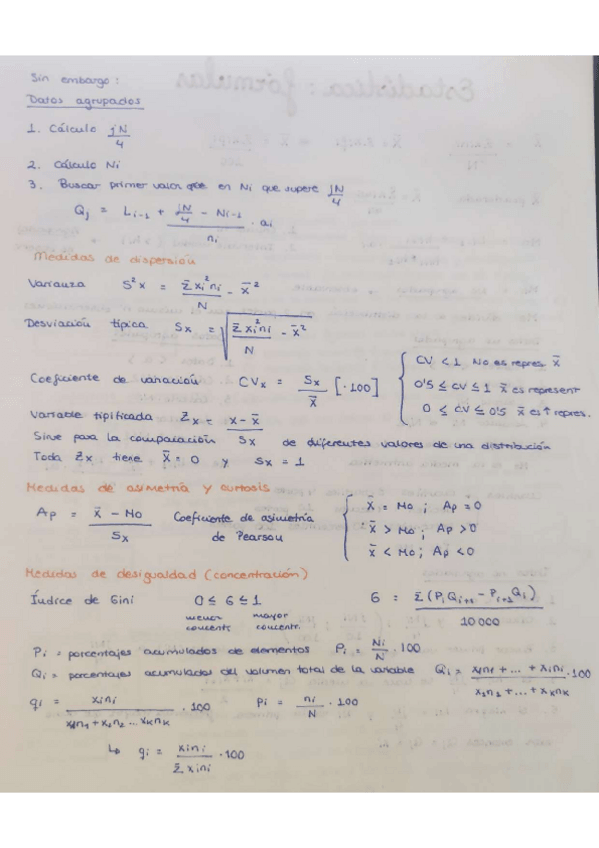 Sin embargo:
Datos agrupados
1. Cálculo jN/4
2. Cálculo Ni
3. Buscar primer valor que en Ni que supere jN/4
Qj = Li-1 + (jN/4 - Ni-1)/ni · ai
Medidas de dispersión
Varianza S²x = Σxi²ni/N - x̄²
Desviación típica Sx = √(Σxi²ni/N - x̄²)
Coeficiente de variación CVx = Sx/x̄ [·100]
CV < 1 No es repres. x̄
0'5 ≤ CV ≤ 1 x̄ es represent
0 ≤ CV ≤ 0'5 x̄ es ↑ repres.
Variable tipificada Zx = (x - x̄)/Sx
Sirve para la comparación de diferentes valores de una distribución
Toda Zx tiene x̄ = 0 y Sx = 1
Medidas de asimetría y curtosis
Ap = (x̄ - Mo)/Sx Coeficiente de asimetría de Pearson
x̄ = Mo ; Ap = 0
x̄ > Mo ; Ap > 0
x̄ < Mo ; Ap < 0
Medidas de desigualdad (concentración)
Índice de Gini 0 ≤ G ≤ 1 G = Σ(PiQi+1 - Pi+1Qi)/10000
menor concentr. mayor concentr.
Pi = porcentajes acumulados de elementos Pi = Ni/N · 100
Qi = porcentajes acumulados del volumen total de la variable Qi = (x1n1 + ... + xini)/(x1n1 + ... + xknk) · 100
qi = xini/(x1n1 + x2n2 ... xknk) · 100 pi = ni/N · 100
↳ qi = xini/Σxini · 100